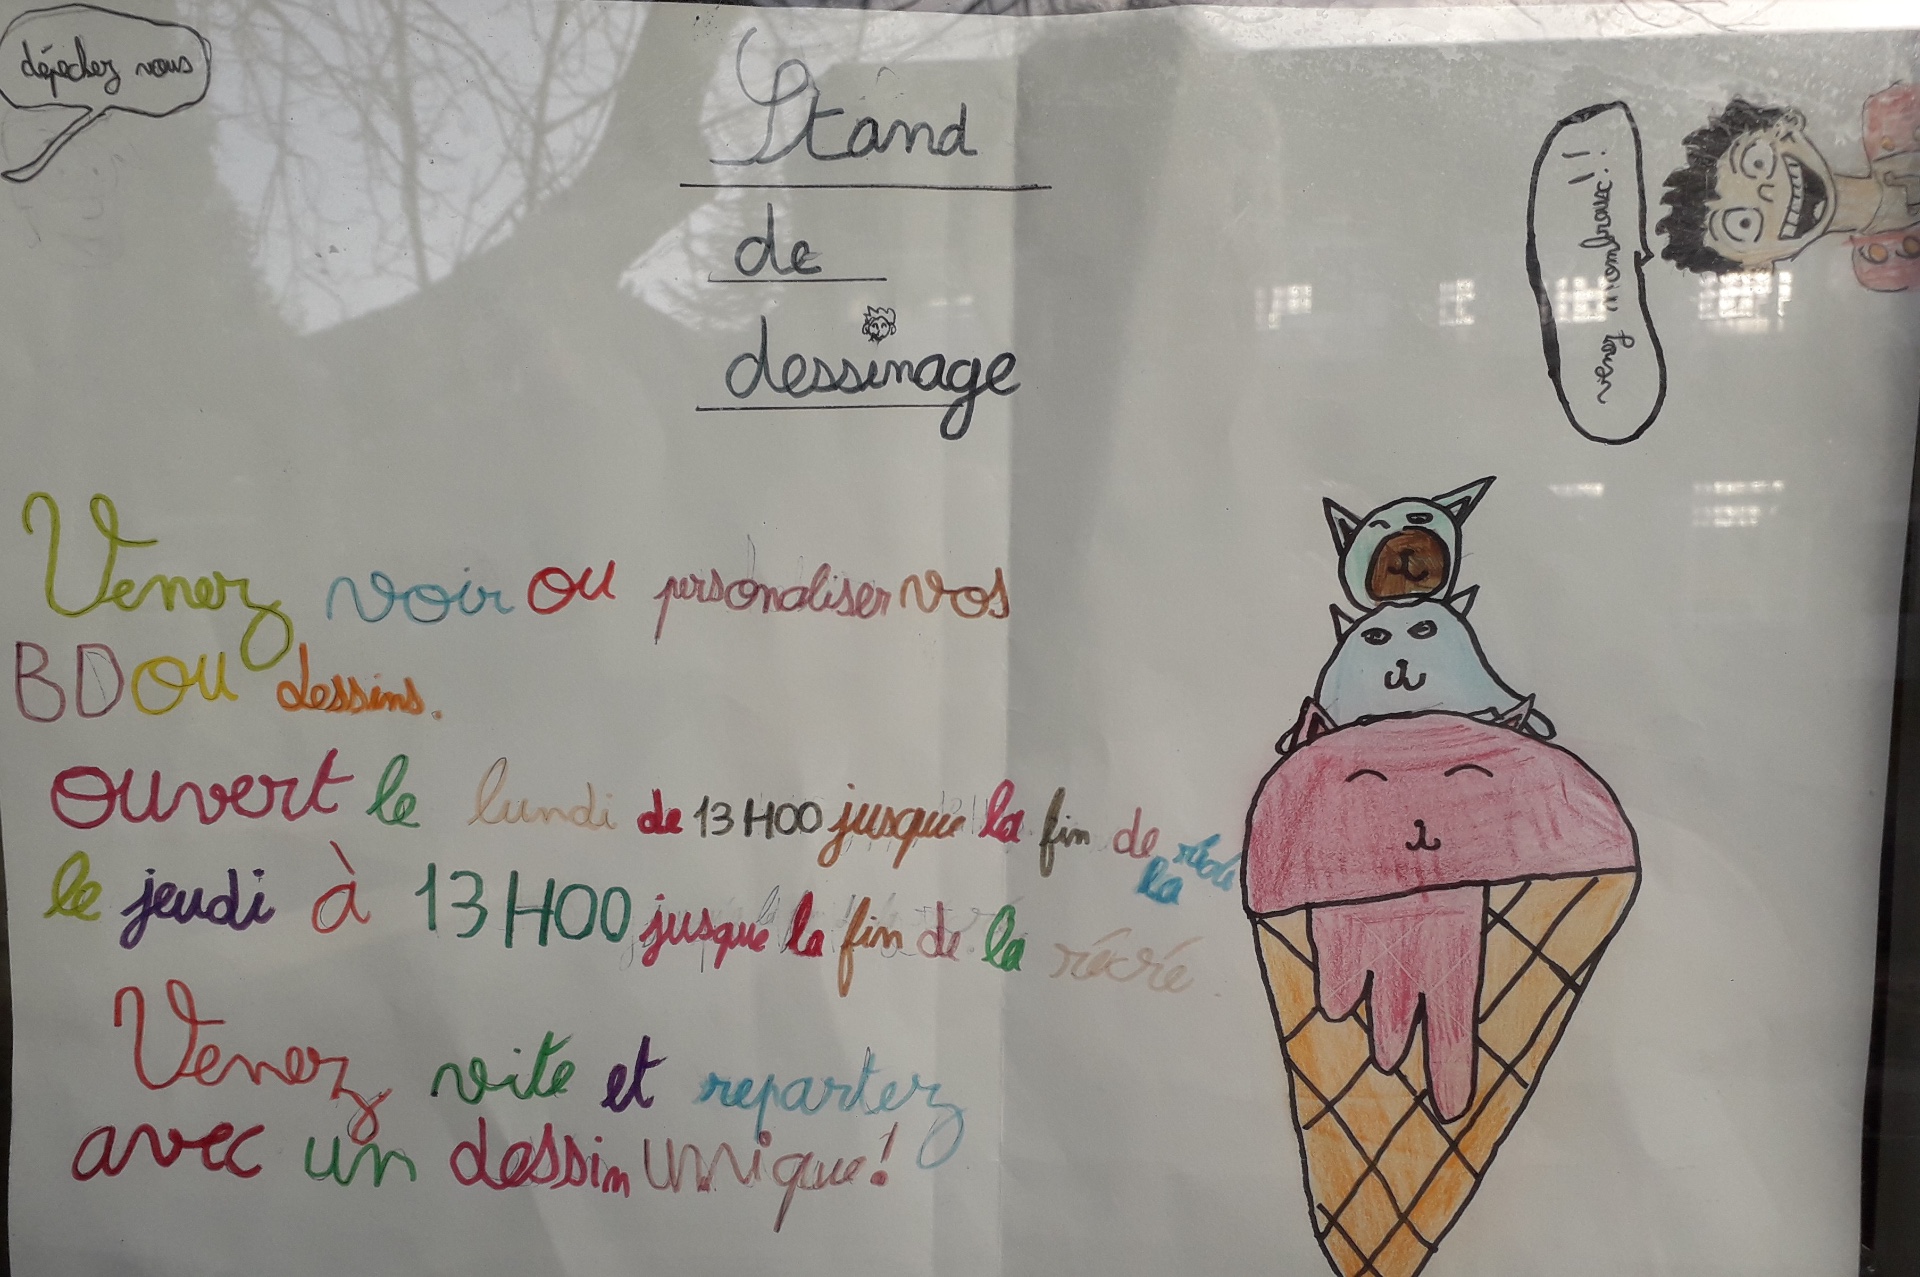 dépechez vous
Stand
de
dessinage
venez nombreux!!
Venez voir ou personaliser vos
BD ou dessins.
ouvert le lundi de 13H00 jusque la fin de la récré
le jeudi à 13H00 jusque la fin de la récré.
Venez vite et repartez
avec un dessin unique!